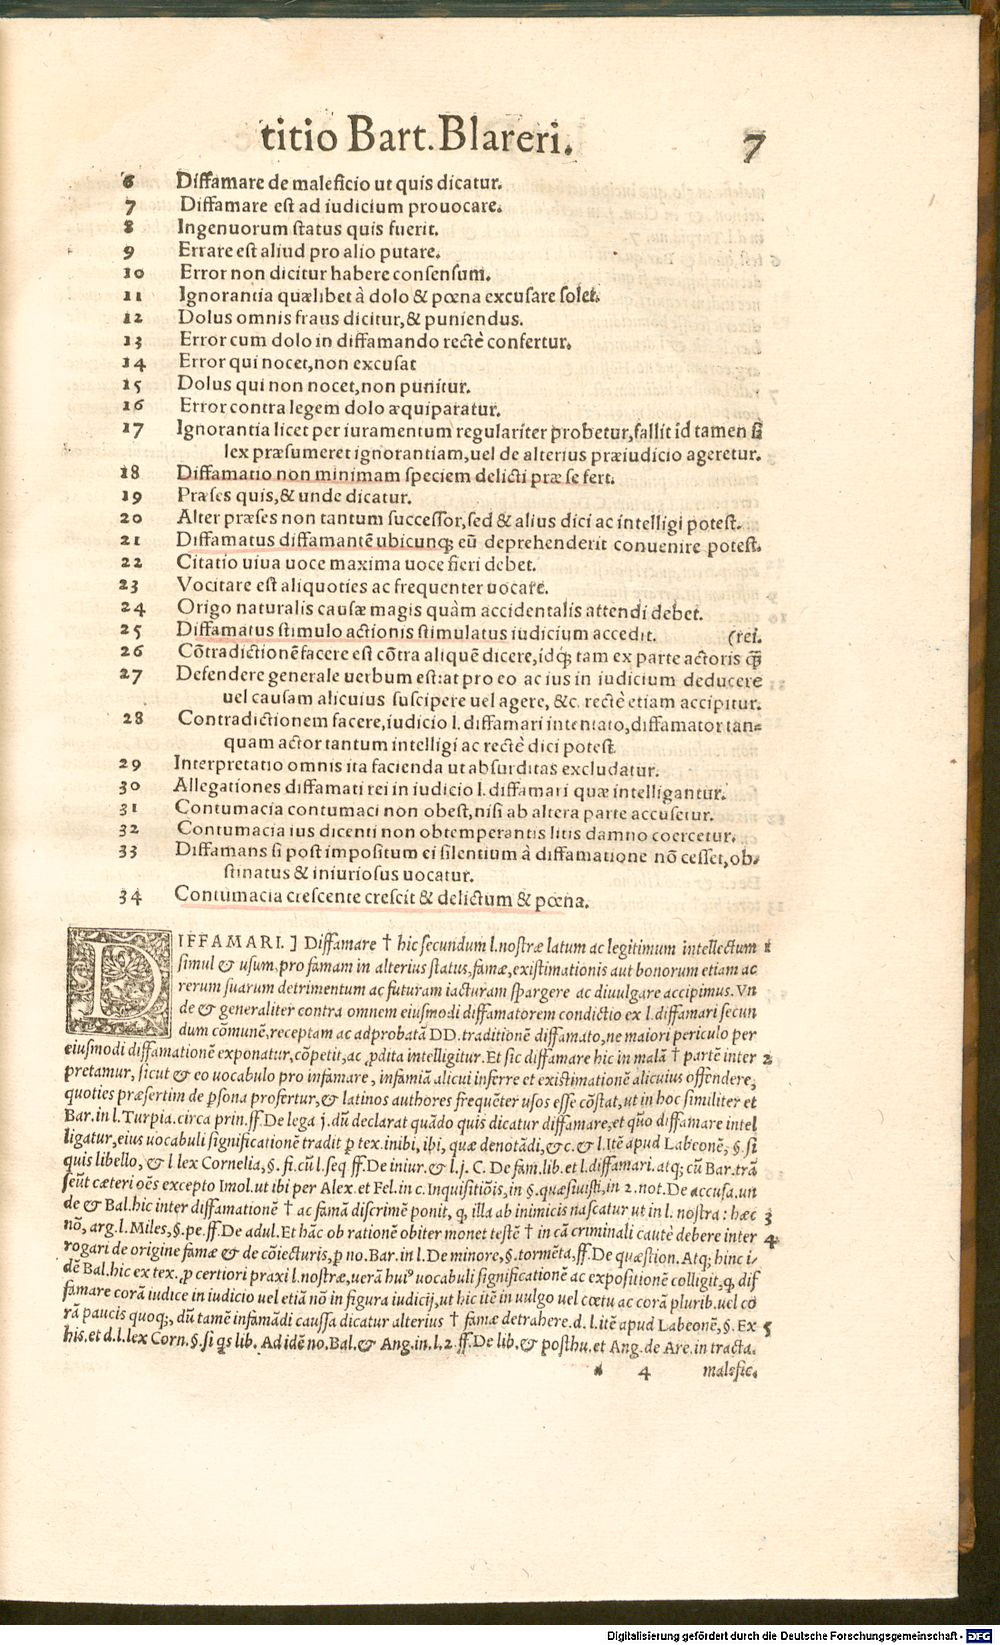 titio Bart. Blareri. 7
6 Diffamare de maleficio ut quis dicatur.
7 Diffamare est ad iudicium prouocare.
8 Ingenuorum status quis fuerit.
9 Errare est aliud pro alio putare.
10 Error non dicitur habere consensum.
11 Ignorantia quælibet à dolo & pœna excusare solet.
12 Dolus omnis fraus dicitur, & puniendus.
13 Error cum dolo in diffamando rectè confertur.
14 Error qui nocet, non excusat
15 Dolus qui non nocet, non punitur.
16 Error contra legem dolo æquiparatur.
17 Ignorantia licet per iuramentum regulariter probetur, fallit id tamen si
lex præsumeret ignorantiam, uel de alterius præiudicio ageretur.
18 Diffamatio non minimam speciem delicti præ se fert.
19 Præses quis, & unde dicatur.
20 Alter præses non tantum successor, sed & alius dici ac intelligi potest.
21 Diffamatus diffamantē ubicunq; eū deprehenderit conuenire potest.
22 Citatio uiua uoce maxima uoce fieri debet.
23 Vocitare est aliquoties ac frequenter uocare.
24 Origo naturalis causæ magis quàm accidentalis attendi debet.
25 Diffamatus stimulo actionis stimulatus iudicium accedit. (rei.
26 Cōtradictionē facere est cōtra aliquē dicere, idq́; tam ex parte actoris q̃
27 Defendere generale uerbum est: at pro eo ac ius in iudicium deducere
uel causam alicuius suscipere uel agere, &c. rectè etiam accipitur.
28 Contradictionem facere, iudicio l. diffamari intentato, diffamator tan=
quam actor tantum intelligi ac rectè dici potest.
29 Interpretatio omnis ita facienda ut absurditas excludatur.
30 Allegationes diffamati rei in iudicio l. diffamari quæ intelligantur.
31 Contumacia contumaci non obest, nisi ab altera parte accusetur.
32 Contumacia ius dicenti non obtemperantis litis damno coercetur.
33 Diffamans si post impositum ei silentium à diffamatione nō cesset, ob-
stinatus & iniuriosus uocatur.
34 Contumacia crescente crescit & delictum & pœna.
DIFFAMARI. ] Diffamare † hic secundum l. nostræ latum ac legitimum intellectum 1
simul & usum, pro famam in alterius status, famæ, existimationis aut bonorum etiam ac
rerum suarum detrimentum ac futuram iacturam spargere ac diuulgare accipimus. Vn
de & generaliter contra omnem eiusmodi diffamatorem condictio ex l. diffamari secun
dum cōmunē, receptam ac adprobatā DD. traditionē diffamato, ne maiori periculo per
eiusmodi diffamationē exponatur, cōpetit, ac ꝓdita intelligitur. Et sic diffamare hic in malā † partē inter 2
pretamur, sicut & eo uocabulo pro infamare, infamiā alicui inferre et existimationē alicuius offendere,
quoties præsertim de ꝑsona profertur, & latinos authores frequēter usos esse cōstat, ut in hoc similiter et
Bar. in l. Turpia. circa prin. ff. De lega j. dū declarat quādo quis dicatur diffamare, et quō diffamare intel
ligatur, eius uocabuli significationē tradit ꝑ tex. inibi, ibi, quæ denotādi, & c. & l. Itē apud Labeonē, §. si
quis libello, & l lex Cornelia, §. fi. cū l. seq ff. De iniur. & l. j. C. De fam. lib. et l. diffamari. atq; cū Bar. trā
seūt cæteri oēs excepto Imol. ut ibi per Alex. et Fel. in c. Inquisitiōis, in §. quæsiuisti, in 2. not. De accusa. un
de & Bal. hic inter diffamationē † ac famā discrimē ponit, q, illa ab inimicis nascatur ut in l. nostra: hæc 3
nō, arg. l. Miles, §. pe. ff. De adul. Et hāc ob rationē obiter monet testē † in cā criminali cautè debere inter 4
rogari de origine famæ & de cōiecturis, ꝑ no. Bar. in l. De minore, §. tormēta, ff. De quæstion. Atq; hinc i/
dē Bal. hic ex tex. ꝓ certiori praxi l. nostræ, uerā huiꝰ uocabuli significationē ac expositionē colligit, q, dif
famare corā iudice in iudicio uel etiā nō in figura iudicij, ut hic itē in uulgo uel cœtu ac corā plurib. uel co
rā paucis quoq;, dū tamē infamādi caussa dicatur alterius † famæ detrahere. d. l. itē apud Labeonē, §. Ex 5
his. et d. l. lex Corn. §. si qs lib. Ad idē no. Bal. & Ang. in. l. 2. ff. De lib. & posthu. et Ang. de Are. in tracta.
4 malefic.
Digitalisierung gefördert durch die Deutsche Forschungsgemeinschaft - DFG